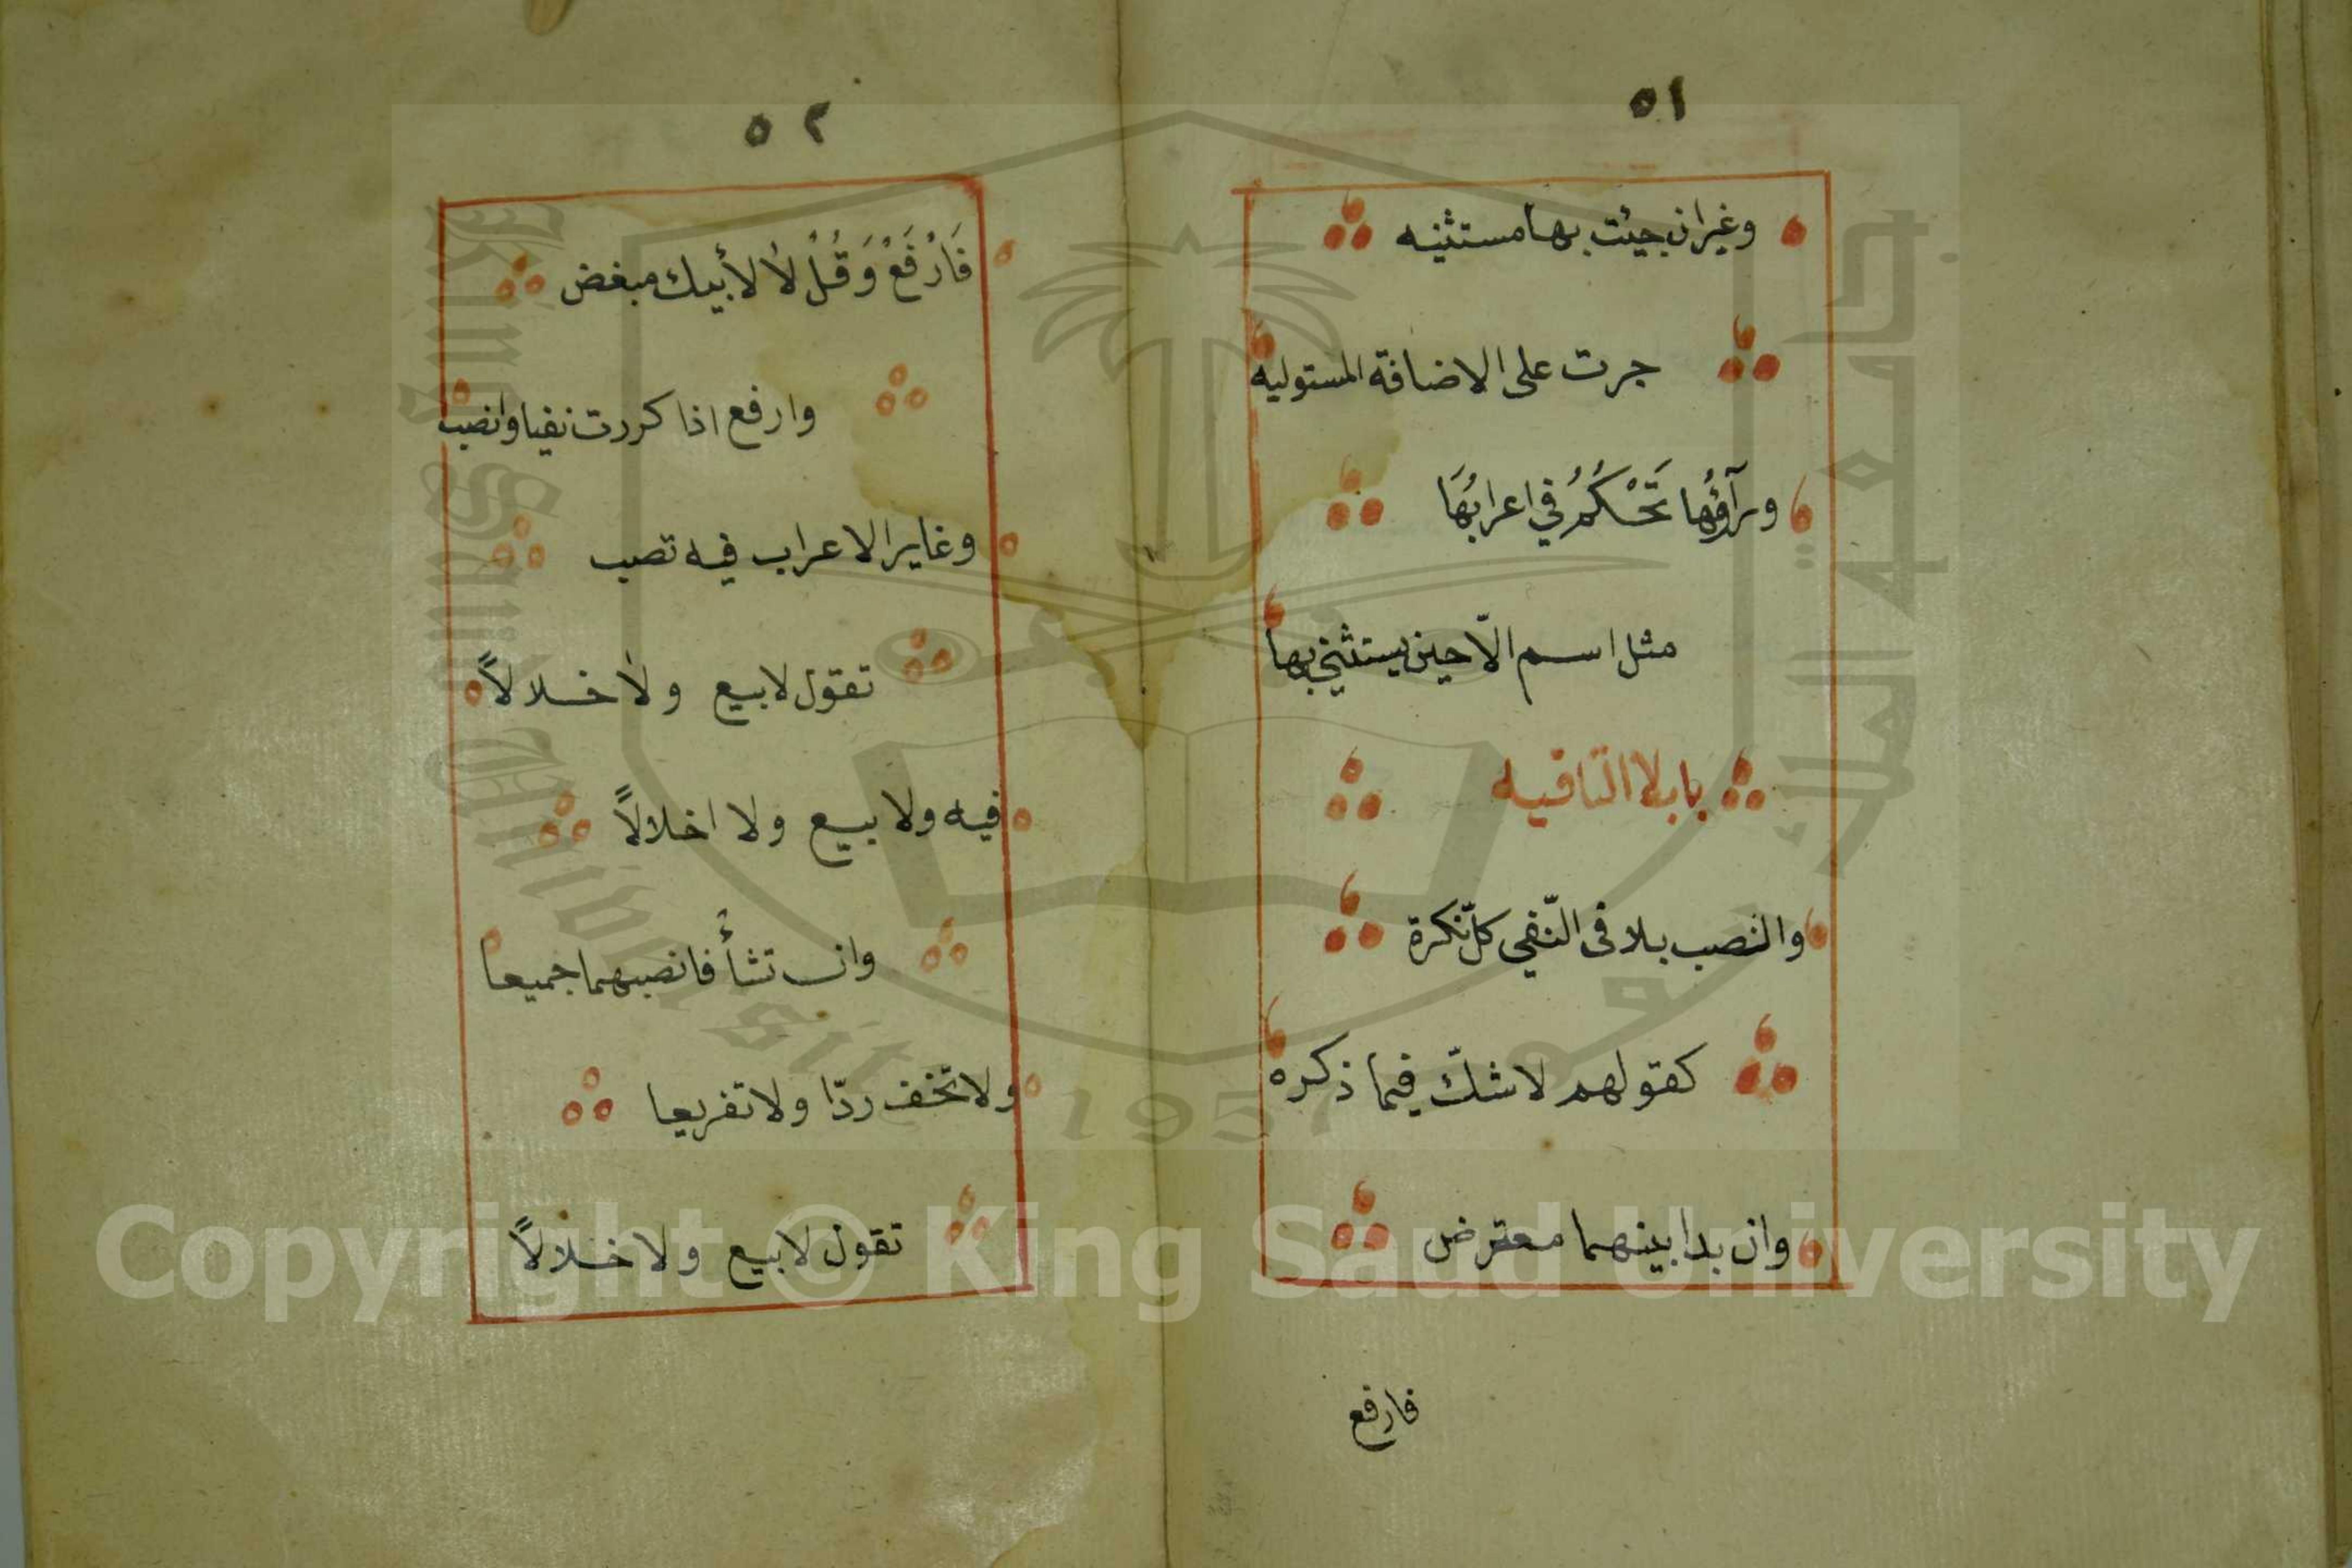 ٥١
وغيران جيئت بها مستثنيه
جرت على الاضافة المستوليه
ورآؤُها تَحْكُمُ في اعرابُهَا
مثل اسم الّا حين يستثني بها
باب لا النافيه
والنصب بلا فى النّفي كلّ نكرة
كقولهم لا شكّ فيما ذكره
وان بدا بينهما معترض
فارفع
٥٢
فَارْفَعْ وَقُلْ لاٰ لاٰبيك مبغض
وارفع اذا كررت نفيا وانصب
وغاير الاعراب فيه تصب
تقول لا بيع ولا خلالاً
فيه ولا بيع ولا اخلالاً
وان تشأ فانصبهما جميعا
ولا تخف ردّا ولا تفريعا
تقول لا بيع ولا خلالاً
جامعة الملك سعود
King Saud University
1957
Copyright © King Saud University